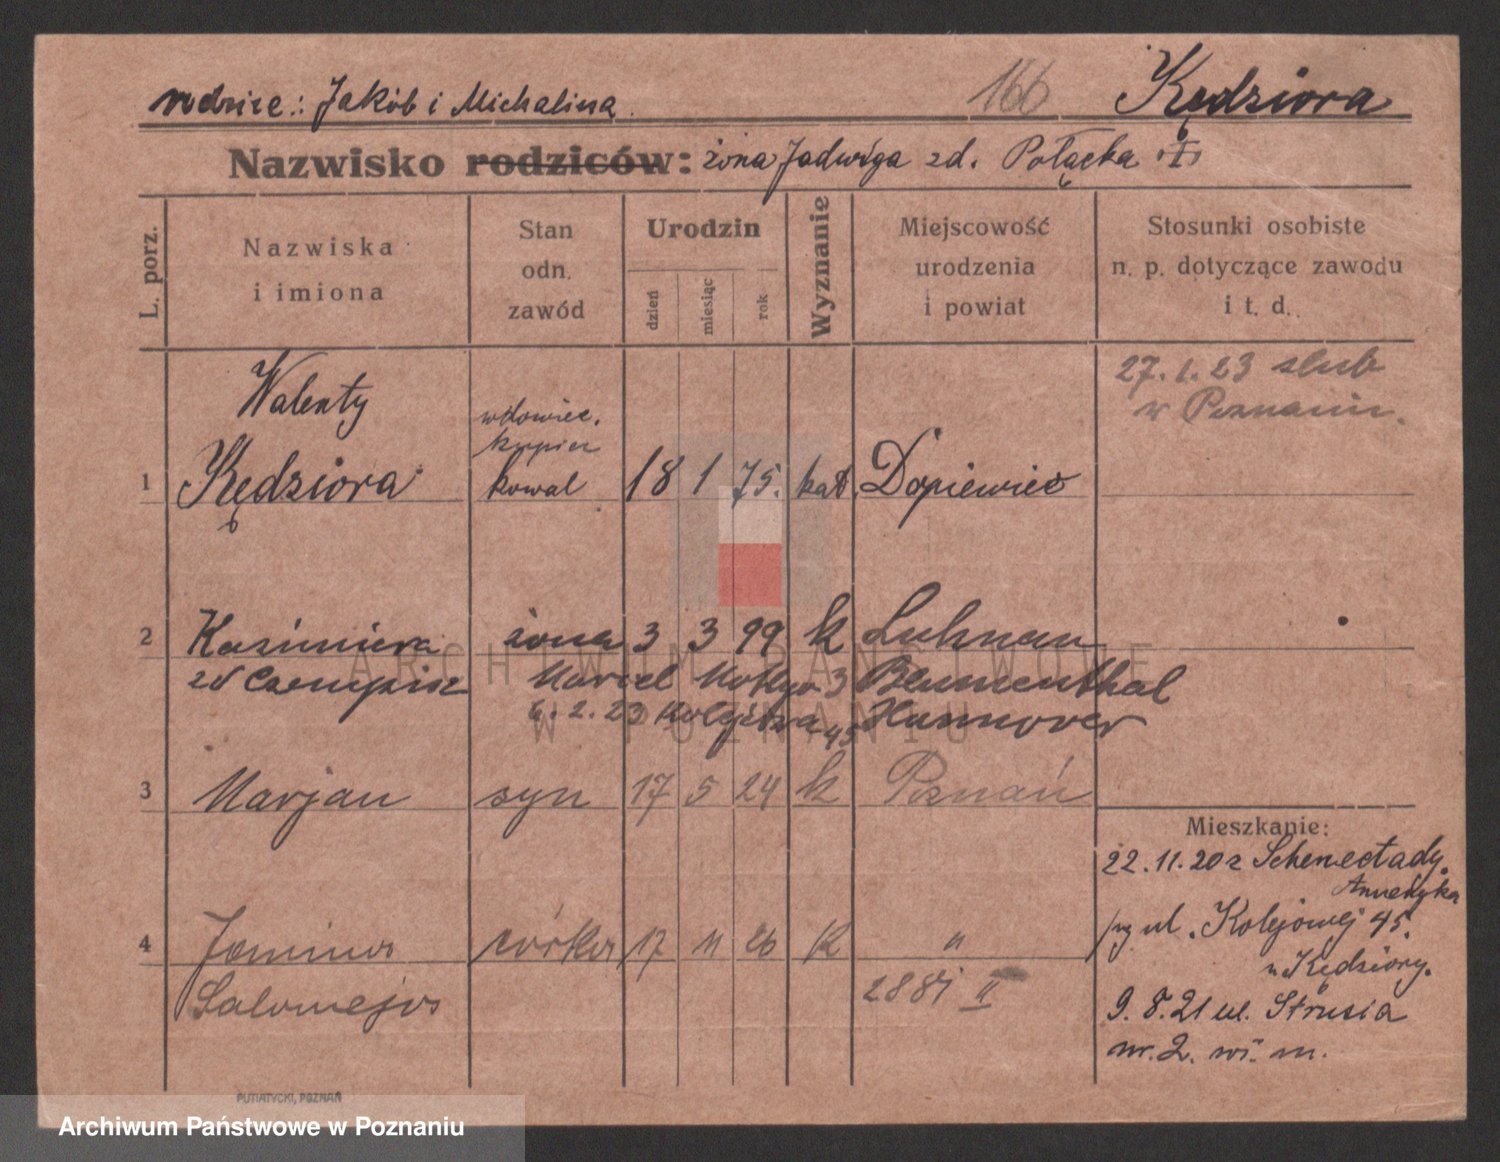 rodzice: Jakób i Michalina. 166 Kędziora
Nazwisko rodziców: żona Jadwiga zd. Połącka
L. porz.
Nazwiska
i imiona
Stan
odn.
zawód
Urodzin
dzień
miesiąc
rok
Wyznanie
Miejscowość
urodzenia
i powiat
Stosunki osobiste
n. p. dotyczące zawodu
i t. d.
27. 1. 23 slub
w Poznaniu.
Walenty
wdowiec.
kupiec
1 Kędziora kowal 18 1 75. kat. Dopiewiec
2 Kazimiera żona 3 3 99 k
zd Czempisz Blumenthal
6. 2. 23 45 Hannover
3 Marjan syn 17 5 24 k Poznań
Mieszkanie:
22. 11. 20 z Schenectady.
Ameryka
przy ul. Kolejowej 45.
u Kędziory.
9. 8. 21 ul. Strusia
nr. 2. wł. m.
4 Janina córka 17 11 26 k "
Salomeja 2881 II
PUTIATYCKI, POZNAŃ
ARCHIWUM PAŃSTWOWE
W POZNANIU
Archiwum Państwowe w Poznaniu